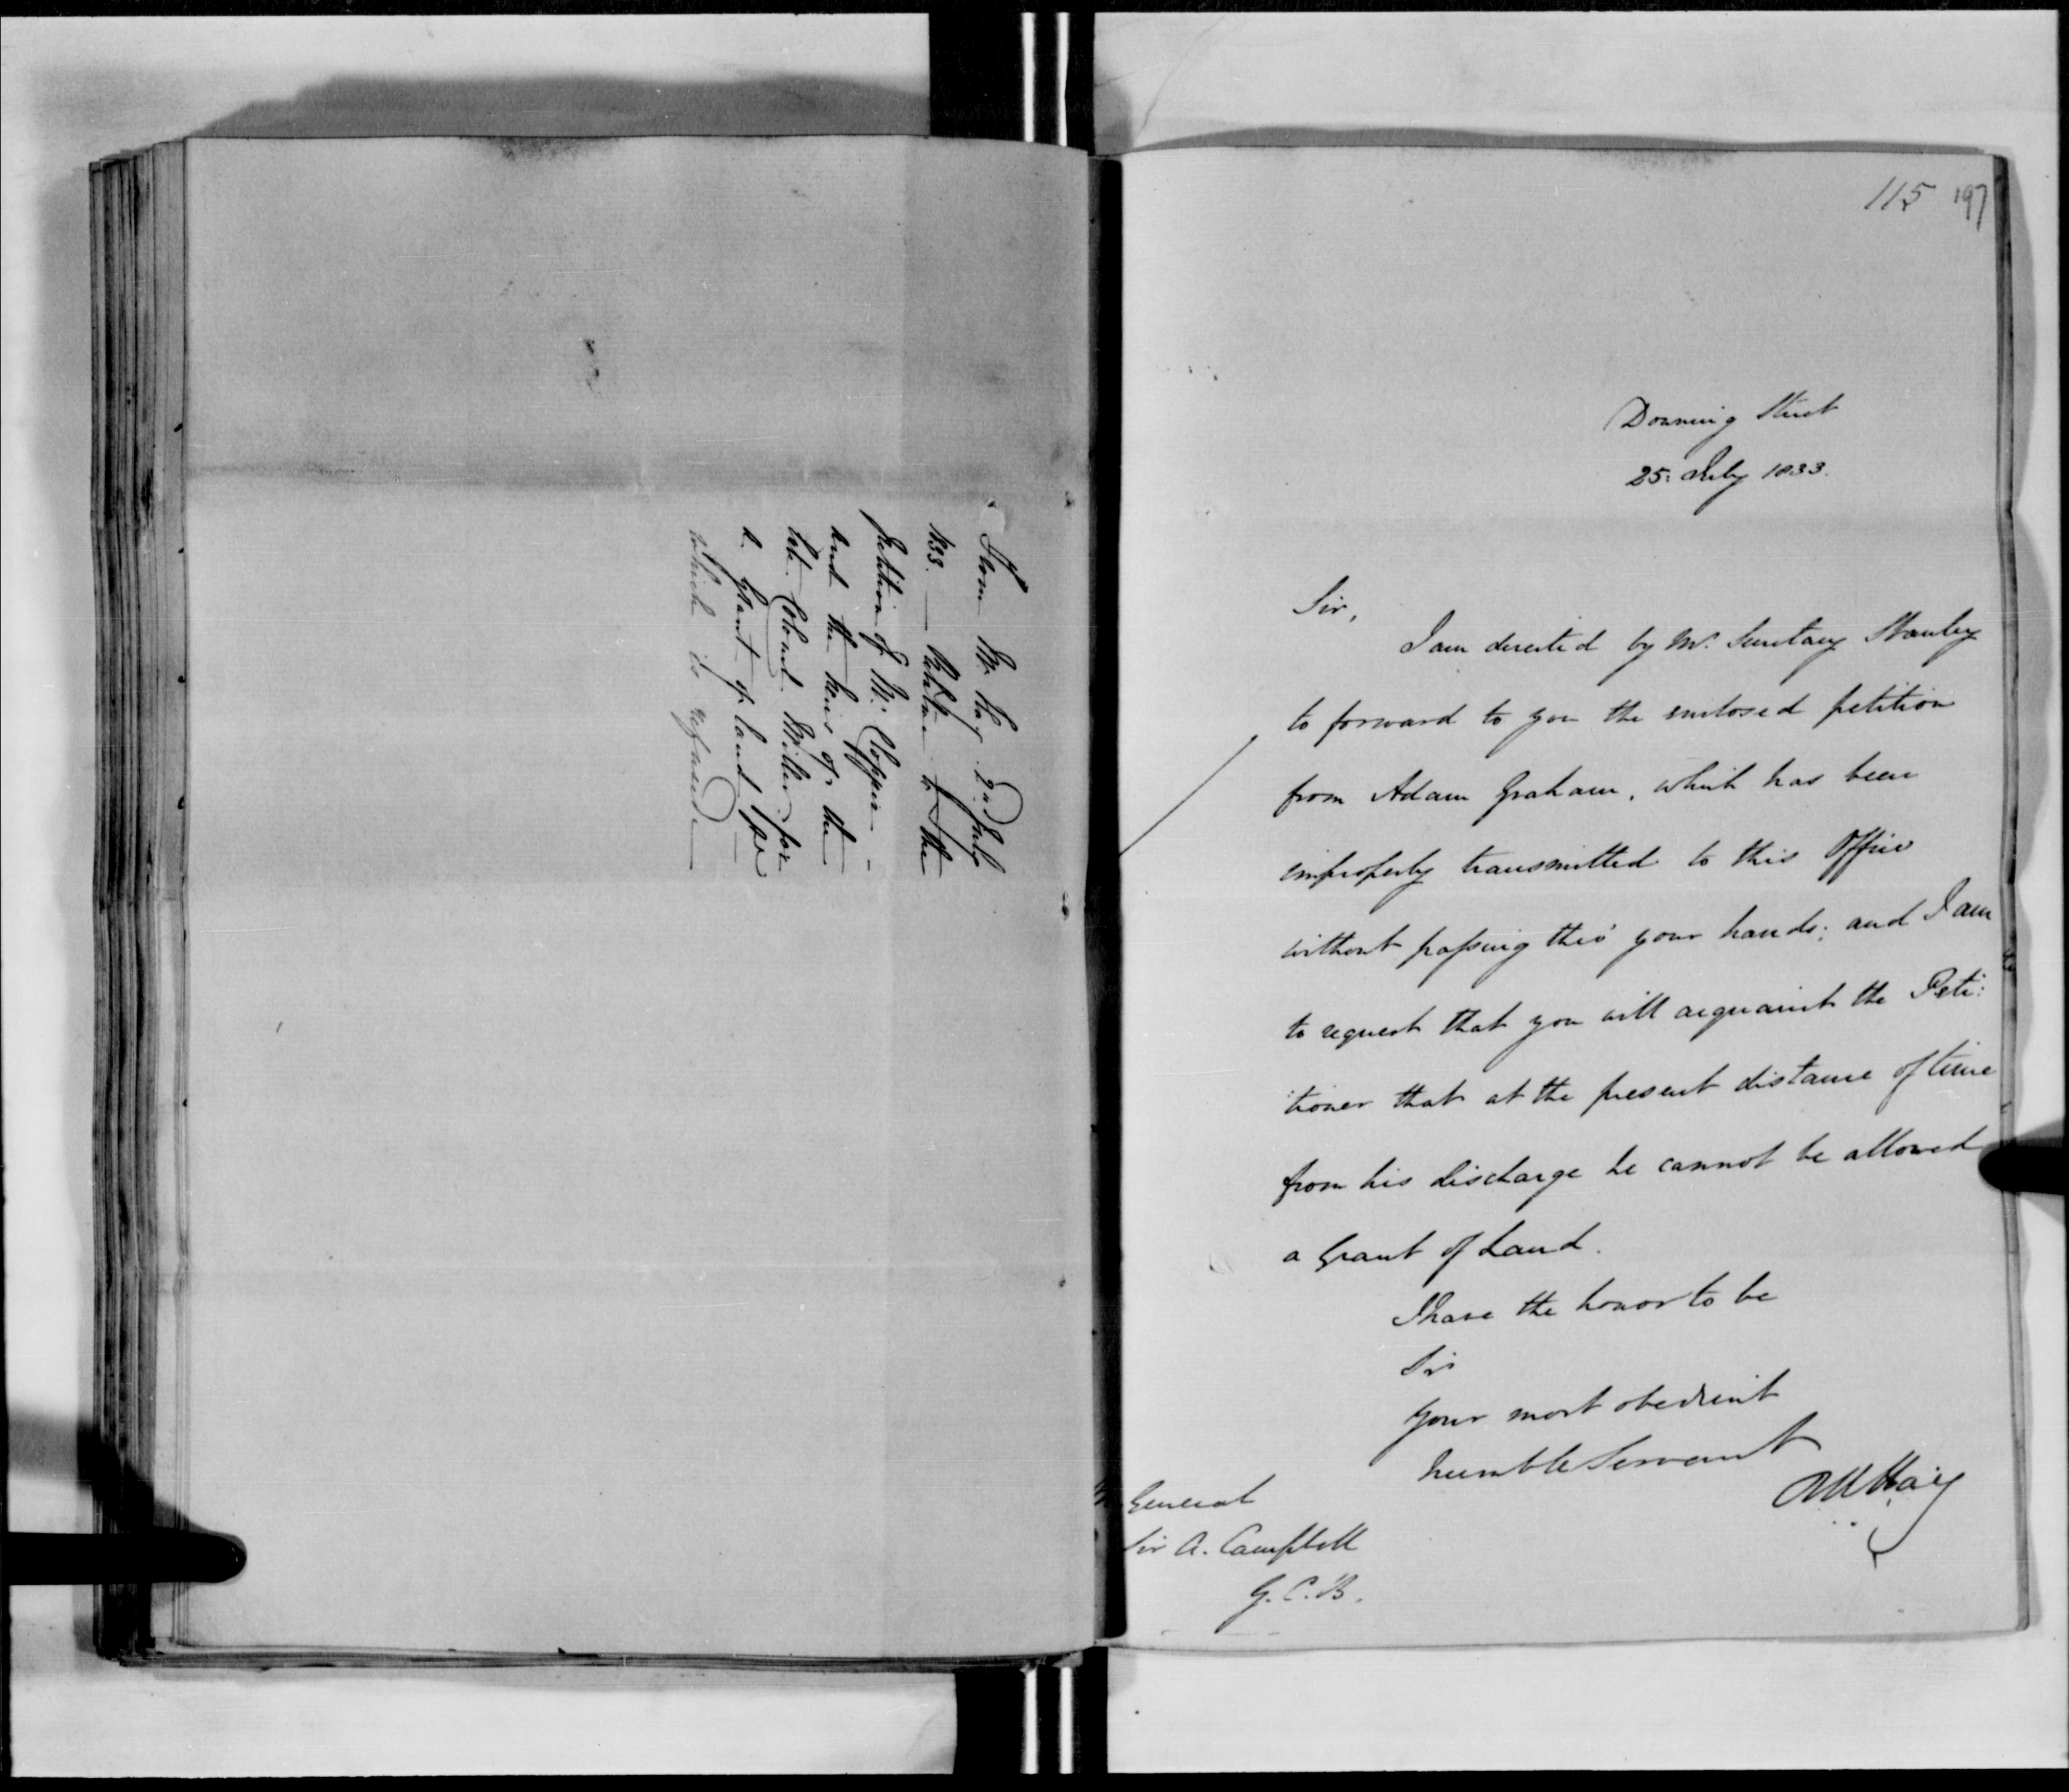 From Mr. Hay 2nd July
1833. — Relative to the
petition of Mr. Clopper —
and the heirs of the
late Colonel Miller for
a grant of land &ca —
which is refused. —
115 197
Downing Street
25: July 1833.
Sir,
I am directed by Mr. Secretary Stanley
to forward to you the enclosed petition
from Adam Graham, which has been
improperly transmitted to this Office
without passing thro' your hands; and I am
to request that you will acquaint the Peti:
:tioner that at the present distance of time
from his discharge he cannot be allowed
a Grant of Land.
I have the honor to be
Sir
Your most obedient
humble Servant
RW Hay
General
Sir A. Campbell
G.C.B.